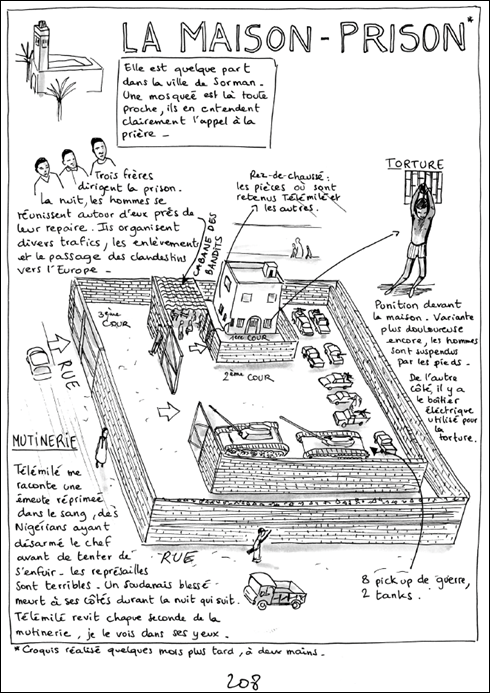 LA MAISON-PRISON*
Elle est quelque part
dans la ville de Sorman.
Une mosqueé est là toute
proche, ils en entendent
clairement l'appel à la
prière.
Trois frères
dirigent la prison.
La nuit, les hommes se
réunissent autour d'eux près de
leur repaire. Ils organisent
divers trafics, les enlèvements
et le passage des clandestins
vers l'Europe.
Rez-de-chaussé:
les pièces où sont
retenus Télémilé et
les autres.
CABANE DES
BANDITS
TORTURE
Punition devant
la maison. Variante
plus douloureuse
encore, les hommes
sont suspendus
par les pieds.
De l'autre
côté, il y a
le boîtier
électrique
utilisé pour
la torture.
3ème
COUR
1ère COUR
2ème COUR
RUE
MUTINERIE
Télémilé me
raconte une
émeute réprimée
dans le sang, des
Nigérians ayant
désarmé le chef
avant de tenter de
s'enfuir. Les représailles
sont terribles. Un soudanais blessé
meurt à ses côtés durant la nuit qui suit.
Télémilé revit chaque seconde de la
mutinerie, je le vois dans ses yeux.
RUE
8 pick up de guerre,
2 tanks.
*Croquis réalisé quelques mois plus tard, à deux mains.
208